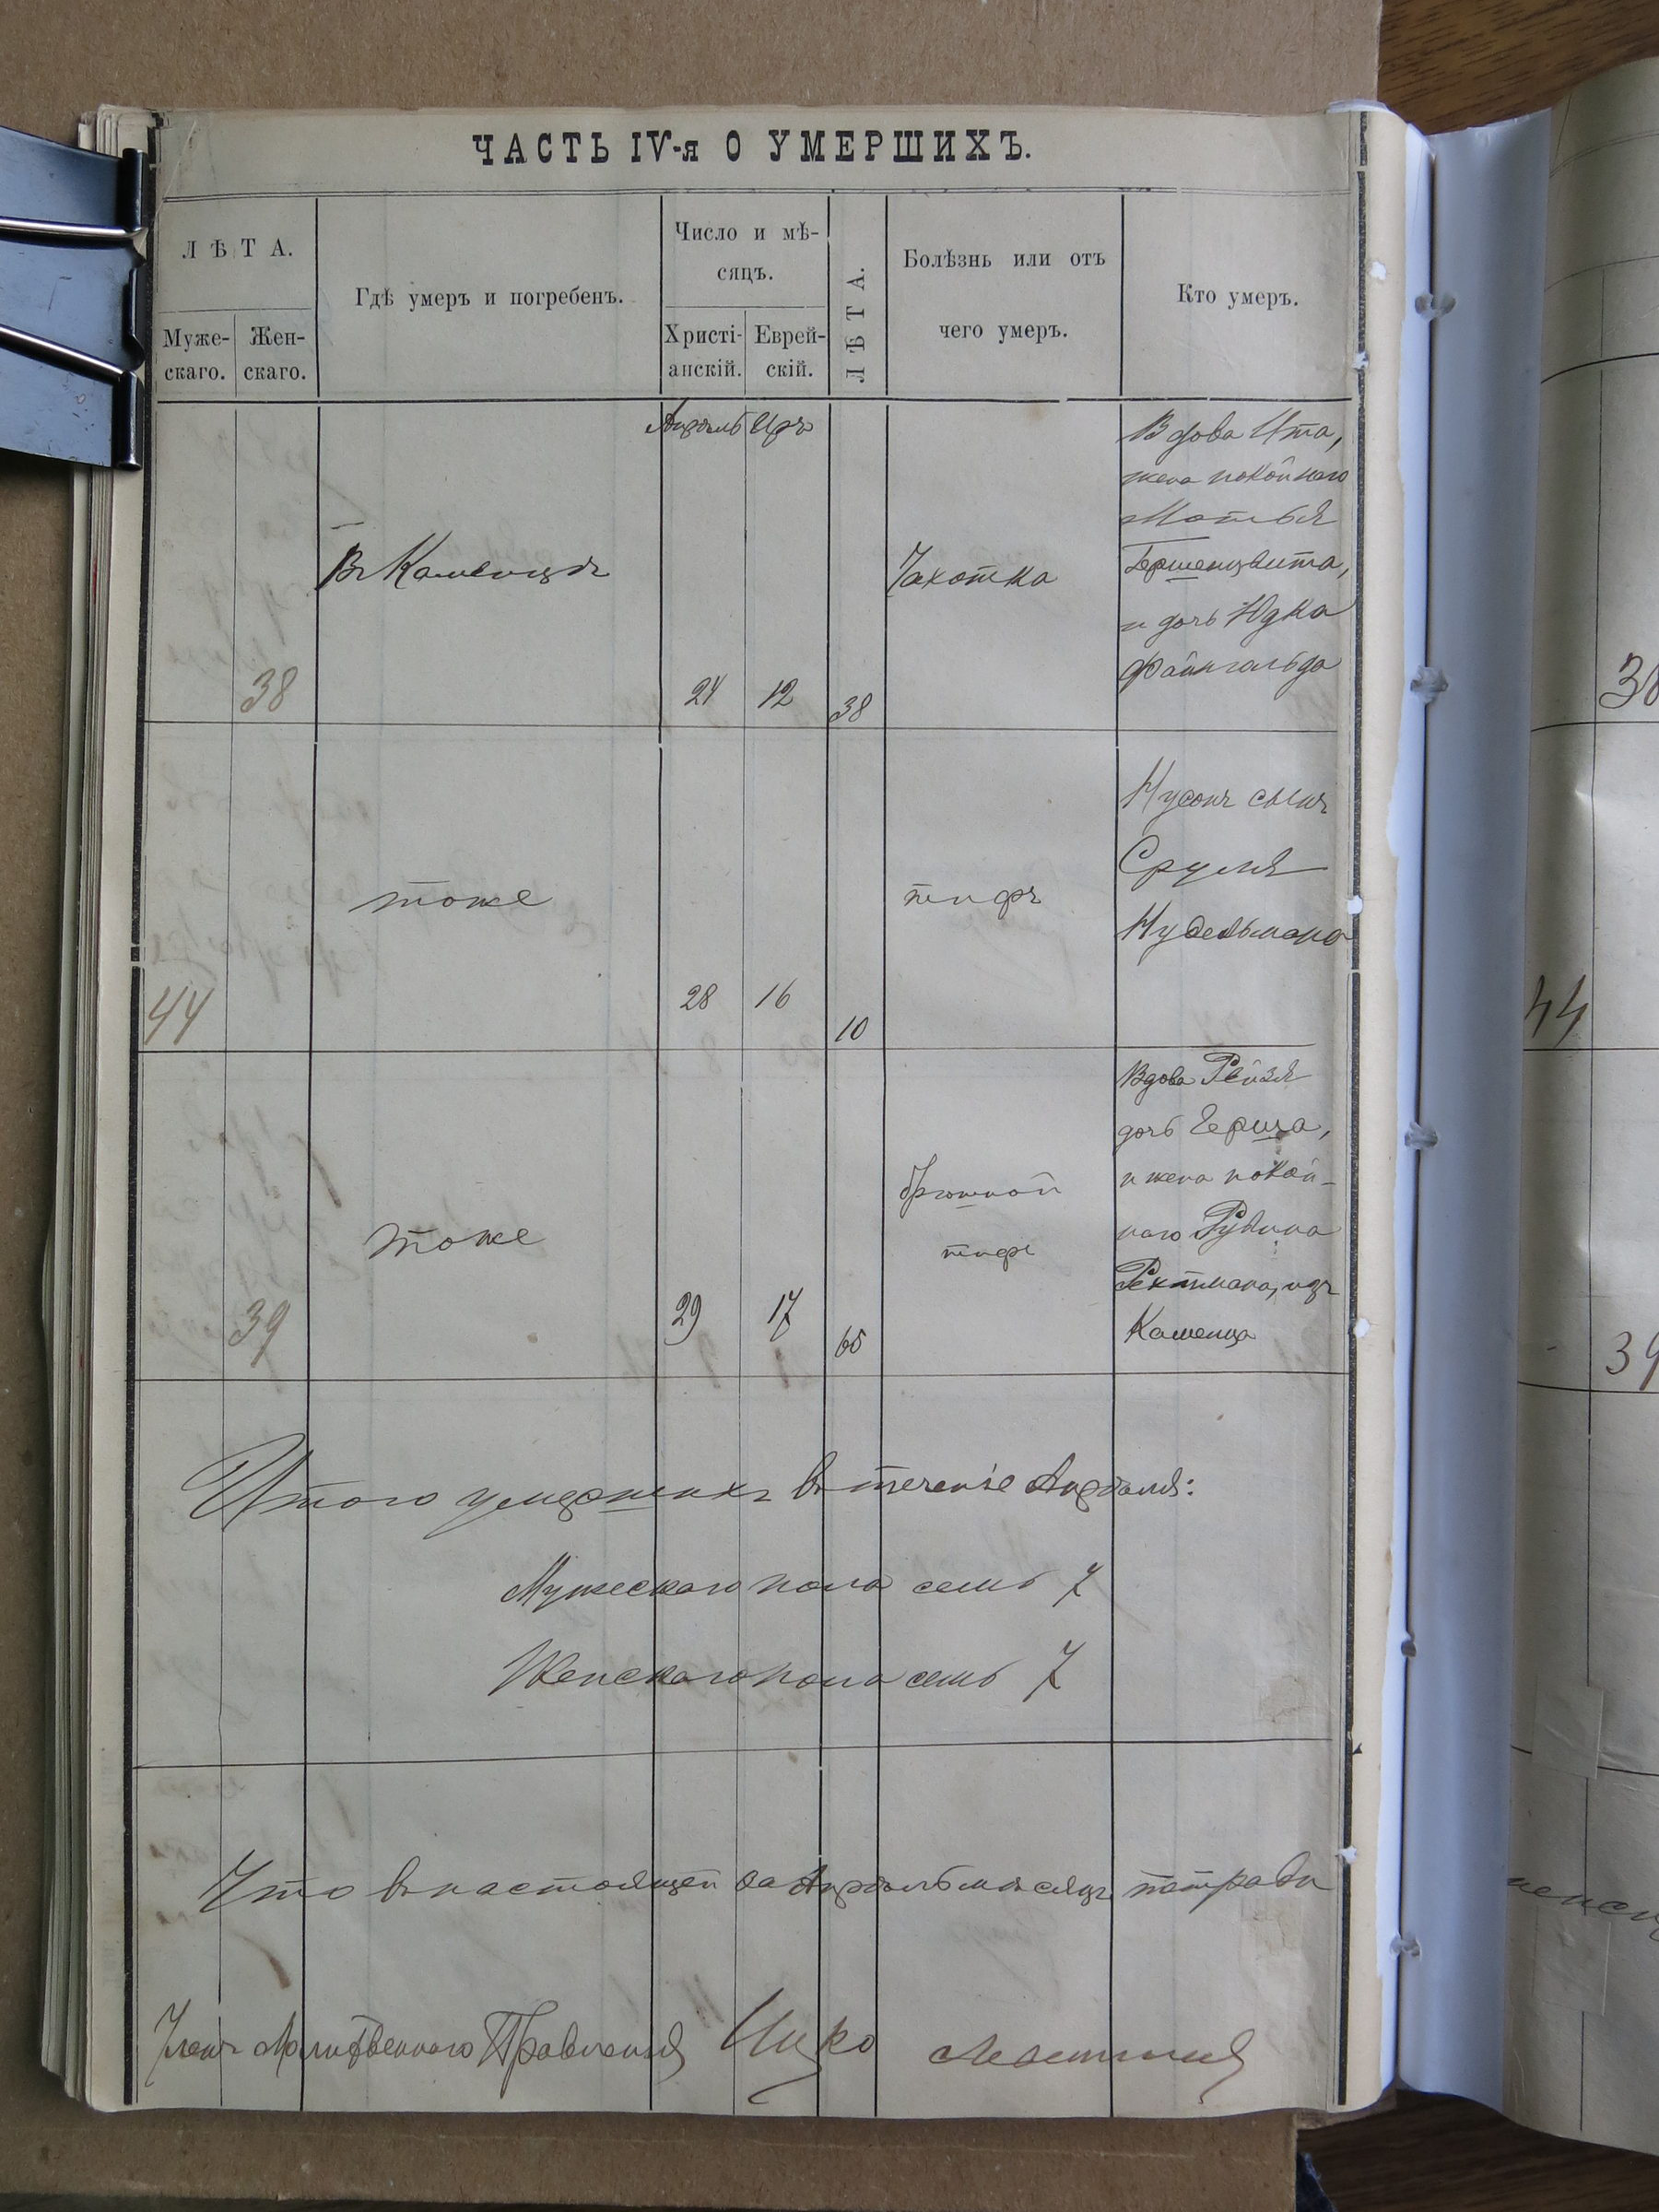 ЧАСТЬ IV-я О УМЕРШИХЪ.
ЛѢТА.
Муже-
скаго.
Жен-
скаго.
Гдѣ умеръ и погребенъ.
Число и мѣ-
сяцъ.
Христі-
анскій.
Еврей-
скій.
ЛѢТА.
Болѣзнь или отъ
чего умеръ.
Кто умеръ.
Апрѣль Иръ
38
Въ Каменцѣ
24
12
38
Чахотка
Вдова Ита,
жена покойнаго
Мотья
Бершенцвита,
и дочь Юдка
Файнгольда
38
44
тоже
28
16
10
тифъ
Нусонъ сынъ
Сруля
Нудельмана
44
39
тоже
29
17
65
брюшной
тифъ
Вдова Рейзя
дочь Герша,
и жена покой-
наго Рувина
Рехтмана, изъ
Каменца
39
Итого умершихъ въ теченіе Апрѣля:
Мужескаго пола семь 7
Женскаго пола семь 7
Что въ настоящей за Апрѣль мѣсяцъ тетради
Членъ Молитвеннаго Правленія Ицко